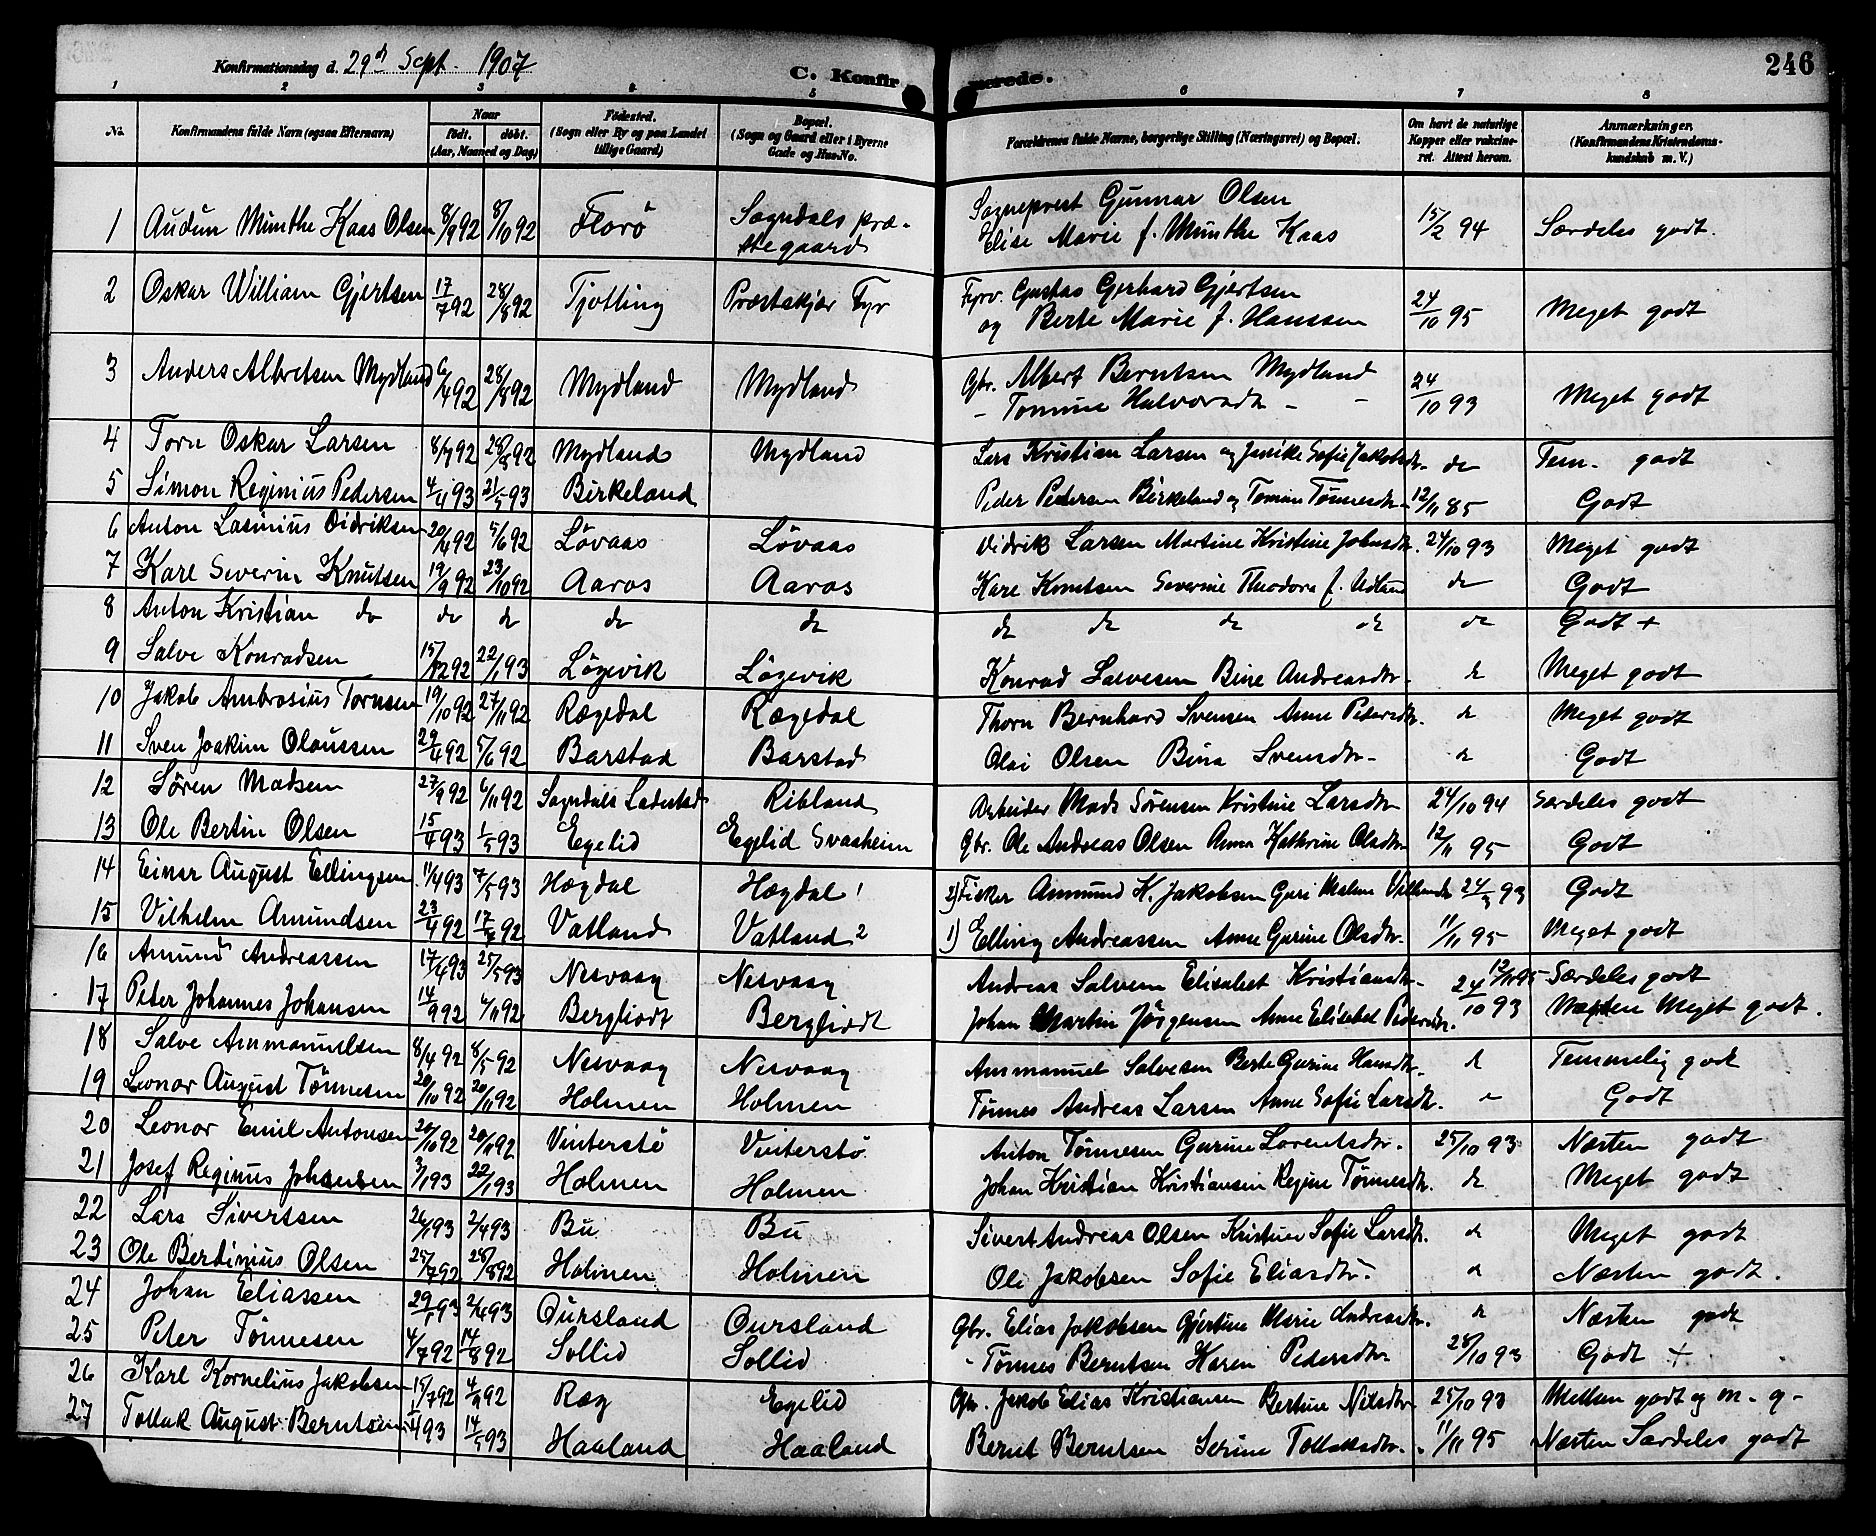 246
Konfirmationsdag d. 29d Sept. 1907
C. Konfirmerede.
1 2 3 4 5 6 7 8
No. Konfirmandens fulde Navn (ogsaa Efternavn) Naar født. døbt. (Aar, Maaned og Dag) Fødested. (Sogn eller By og paa Landet tillige Gaard) Bopæl. (Sogn og Gaard eller i Byerne Gade og Hus-No. Forældrenes fulde Navne, borgerlige Stilling (Næringsvei) og Bopæl. Om havt de naturlige Kopper eller vakcineret. Attest herom. Anmærkninger. (Konfirmandens Kristendomskundskab m. V.)
1 Audun Munthe Kaas Olsen 8/9 92 8/10 92 Florö Sogndals præstegaard Sogneprest Gunnar Olsen Elise Marie f. Munthe Kaas 15/2 94 Særdeles godt.
2 Oskar William Gjertsen 17/7 92 28/8 92 Tjølling Præstskjær Fyr Fyrv. Gustav Gerhard Gjertsen og Berte Marie f. Hanssen 24/10 95 Meget godt
3 Anders Albretsen Mydland 28/8 92 Mydland Mydland Gbr. Albert Berntsen Mydland - Tomine Halvorsdtr - - 24/10 93 Meget godt
4 Torn Oskar Larsen 28/8 92 Mydland Mydland Lars Kristian Larsen og Janike Sofie Jakobsdtr. do Tem. godt
5 Simon Reginius Pedersen 4/4 93 21/5 93 Birkeland Peder Pedersen Birkeland og Tomine Tønnesdtr 12/11 85 Godt
6 Anton Lasinius Didriksen 20/4 92 5/6 92 Løvaas Løvaas Didrik Larsen Martine Kristine Johnsdtr. 24/10 93 Meget godt
7 Karl Severin Knutsen 19/9 92 23/10 92 Aaros Aaros Karl Knutsen Severine Theodora f. Udland do Godt
8 Anton Kristian do do do do do do do do do do Godt +
9 Salve Konradsen 15/12 92 22/1 93 Løgevik Løgevik Konrad Salvesen Bine Andreasdtr. d Meget godt
10 Jakob Ambrosius Tornsen 19/10 92 27/11 92 Rægedal Rægedal Thorn Bernhard Svensen Anne Pedersdtr. d Meget godt
11 Sven Joakim Olaussen 29/4 92 5/6 92 Barstad Barstad Olai Olsen Bina Svensdtr. d Godt
12 Søren Madsen 27/9 92 6/11 92 Sogndals Ladested Ribland Arbeider Mads Sørensen Kristine Larsdtr 24/10 94 Særdeles godt
13 Ole Bertin Olsen 15/4 93 1/5 93 Egelid Egelid Svaaheim Gbr. Ole Andreas Olsen Anna Kathrine Olsdtr. 12/11 95 Godt
14 Einar August Ellingsen 11/4 93 7/5 93 Hægdal Hægdal 1 2) Fisker Amund K. Jakobsen Guri Malene 93 Godt
15 Vilhelm Amundsen 23/4 92 92 Vatland Vatland 2 1) Elling Andreassen Anne Gurine Olsdtr. 11/11 95 Meget godt
16 Amund Andreassen 17/4 93 25/5 93 Nesvaag Nesvaag Andreas Salvesen Elisabet Kristiansdtr. 12/11 95 Særdeles godt
17 Peter Johannes Johansen 14/9 92 6/11 92 Bergliodt Bergliodt Johan Martin Jørgensen Anne Elisabet Pedersdtr. 24/10 93 Næsten Meget godt.
18 Salve Ammanuelsen 8/4 92 8/5 92 Nesvaag Nesvaag Ammanuel Salvesen Berte Gurine Hansdtr. d Temmelig godt
19 Leonor August Tønnesen 20/10 92 20/11 92 Holmen Holmen Tønnes Andreas Larsen Anne Sofie Larsdtr. - Godt
20 Leonor Emil Antonsen 20/10 92 20/11 92 Vinterstø Vinterstø. Anton Tønnesen Gurine Lorentsdtr. 25/10 93 Næsten godt
21 Josef Reginus Johansen 3/1 93 22/1 93 Holmen Holmen Johan Kristian Kristiansen Regine Tønnesdtr. do Meget godt
22 Lars Sivertsen 26/1 93 2/4 93 Bu Bu Sivert Andreas Olsen Kristine Sofie Larsdtr. d Meget godt
23 Ole Berdinius Olsen 25/7 92 28/8 92 Holmen Holmen Ole Jakobsen Sofie Eliasdtr. d Næsten godt.
24 Johan Eliassen 29/1 93 2/4 93 Oursland Oursland Gbr. Elias Jakobsen Gjertine Marie Andreasdtr. d Næsten godt
25 Peter Tønnesen 4/7 92 14/8 92 Sollid Sollid - Tønnes Berntsen Karen Pedersdtr 28/10 93 Godt +
26 Karl Kornelius Jakobsen 15/7 92 4/9 92 Ræg Egelid Gbr. Jakob Elias Kristiansen Bertine Nilsdtr 25/10 93 Mellem godt og m. g.
27 Tollak August Berntsen 93 14/5 93 Haaland Haaland Bernt Berntsen Serine Tollaksdtr. 11/11 95 Næsten Særdeles godt